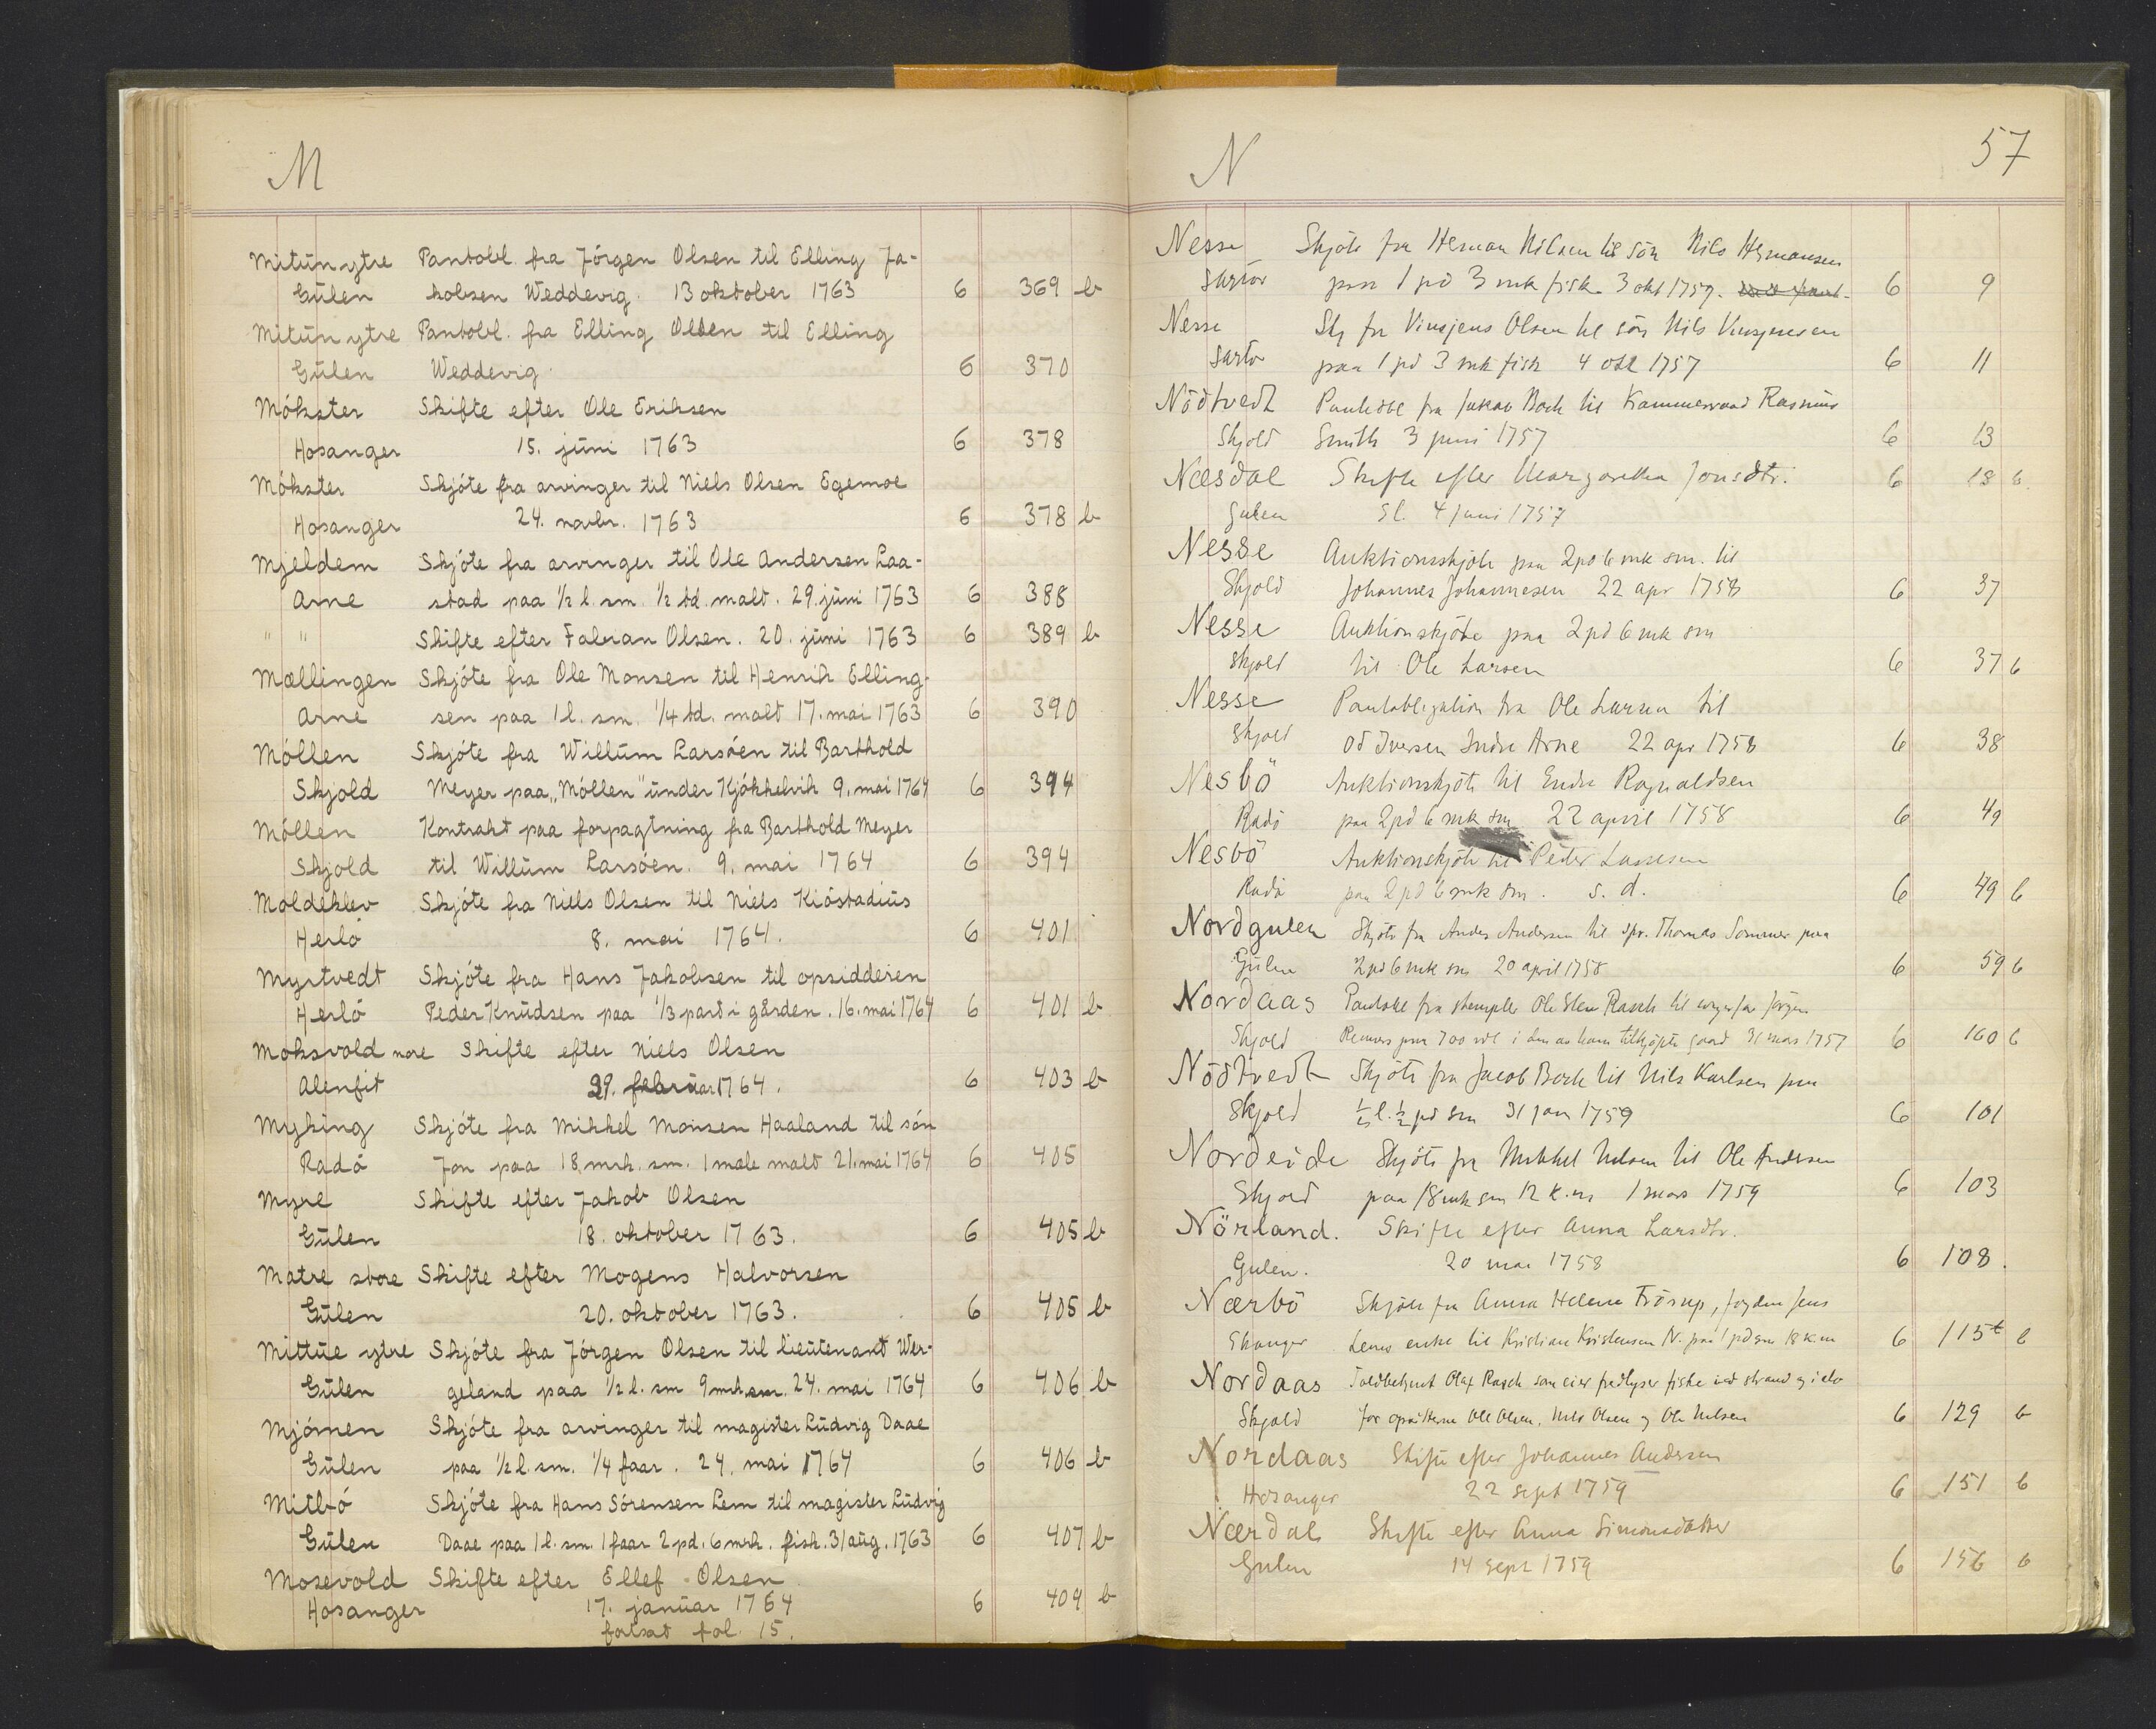 M
Mitun ytre Pantobl. fra Jörgen Olsen til Elling Ja-
Gulen kobsen Weddevig. 13 oktober 1763 6 369 b
Mitun ytre Pantobl. fra Elling Olsen til Elling
Gulen Weddevig. 6 370
Mökster Skifte efter Ole Eriksen
Hosanger 15. juni 1763 6 378
Mökster Skjöte fra arvinger til Niels Olsen Egemoe
Hosanger 24. novbr. 1763 6 378 b
Mjeldem Skjöte fra arvinger til Ole Andersen Laa-
Arne stad paa 1/2 l. sm. 1/2 td. malt. 29. juni 1763 6 388
" " Skifte efter Fabian Olsen. 20. juni 1763 6 389 b
Mællingen Skjöte fra Ole Monsen til Henrik Elling-
Arne sen paa 1 l. sm. 1/4 td. malt 17. mai 1763 6 390
Möllen Skjöte fra Willum Larsöen til Barthold
Skjold Meyer paa „Möllen" under Kjökkelvik 9. mai 1764 6 394
Möllen Kontrakt paa forpagtning fra Barthold Meyer
Skjold til Willum Larsöen. 9. mai 1764 6 394
Moldeklev Skjöte fra Niels Olsen til Niels Kiöstadius
Herlö 8. mai 1764. 6 401
Myrtvedt Skjöte fra Hans Jakobsen til opsidderen
Herlö Peder Knudsen paa 1/3 part i gården. 16. mai 1764 6 401 b
Moksvold nore Skifte efter Niels Olsen
Alenfit 29. februar 1764. 6 403 b
Myking Skjöte fra Mikkel Monsen Haaland til sön
Radö Jon paa 18 mrk. sm. 1 mæle malt 21. mai 1764 6 405
Myre Skifte efter Jakob Olsen
Gulen 18. oktober 1763. 6 405 b
Matre store Skifte efter Mogens Halvorsen
Gulen 20. oktober 1763. 6 405 b
Mittue ytre Skjöte fra Jörgen Olsen til lieutenant Wer-
Gulen geland paa 1/2 l. sm 9 mrk. sm. 24. mai 1764 6 406 b
Mjömen Skjöte fra arvinger til magister Ludvig Daae
Gulen paa 1/2 l. sm. 1/4 faar. 24. mai 1764 6 406 b
Mitbö Skjöte fra Hans Sörensen Lem til magister Ludvig
Gulen Daae paa 1 l. sm. 1 faar 2 pd. 6 mrk. fisk. 31 aug. 1763 6 407 b
Mosevold Skifte efter Ellef Olsen
Hosanger 17. januar 1764 6 409 b
fol. 15.
N 57
Nesse Skjöte fra Herman Nilsen til sön Nils Hermansen
Sartor paa 1 pd 3 mk fisk. 3 okt 1757. 6 9
Nesse Skj fra Vinsjens Olsen til sön Nils Vinsjensen
Sartor paa 1 pd 3 mk fisk 4 okt 1757 6 11
Nödtvedt Pantobl fra Jakob Bock til Kammerraad Rasmus
Skjold Smith 3 juni 1757 6 13
Næsdal Skifte efter Margaretha Jonsdtr. 6 18 b.
Gulen Sl. 4 juni 1757
Nesse Auktionsskjöte paa 2 pd 6 mk sm. til
Skjold Johannes Johannesen 22 apr 1758 6 37
Nesse Auktionskjöte paa 2 pd 6 mk sm
Skjold til Ole Larsen 6 37 b
Nesse Pantobligation fra Ole Larsen til
Skjold Od Iversen Indre Arne 22 apr 1758 6 38
Nesbö Auktionskjöte til Endre Ragnaldsen
Radö paa 2 pd 6 mk sm 22 april 1758 6 49
Nesbö Auktionskjöte til Peder Lassesen
Radö paa 2 pd 6 mk sm. s. d. 6 49 b
Nordgulen Skjöte fra Anders Andersen til spr. Thomas Sommer paa
Gulen 2 pd 6 mk sm 20 april 1758 6 59 b
Nordaas Pantobl fra stempler Ole Rasch til Jörgen
Skjold Remers paa 700 rdl i den av ham tilkjöpte gaard 31 mars 1757 6 160 b
Nödtvedt Skjöte fra Jacob Bock til Nils Karlsen paa
Skjold 1/2 l. 1/2 pd sm 31 jan 1759 6 101
Nordeide Skjöte fra Mikkel Nilsen til Ole Andersen
Skjold paa 18 mk sm 12 k. m 1 mars 1759 6 103
Nörland. Skifte efter Anna Larsdtr.
Gulen. 20 mai 1758 6 108.
Nærbö Skjöte fra Anna Helene Frösup, fogden Jens
Ekanger Lems enke til Kristian Kristensen N. paa 1 pd sm 18 k m 6 115 b
Nordaas Toldbetjent Olaf Rasch som eier fredlyser fiske ved strand og i elv
Skjold for opsitterne Ole Olsen, Nils Olsen og Ole Nilsen 6 129 b
Nordaas Skifte efter Johannes Andersen
Hosanger 22 sept 1759 6 151 b
Nærdal Skifte efter Anna Simonsdatter
Gulen 14 sept 1759 6 156 b